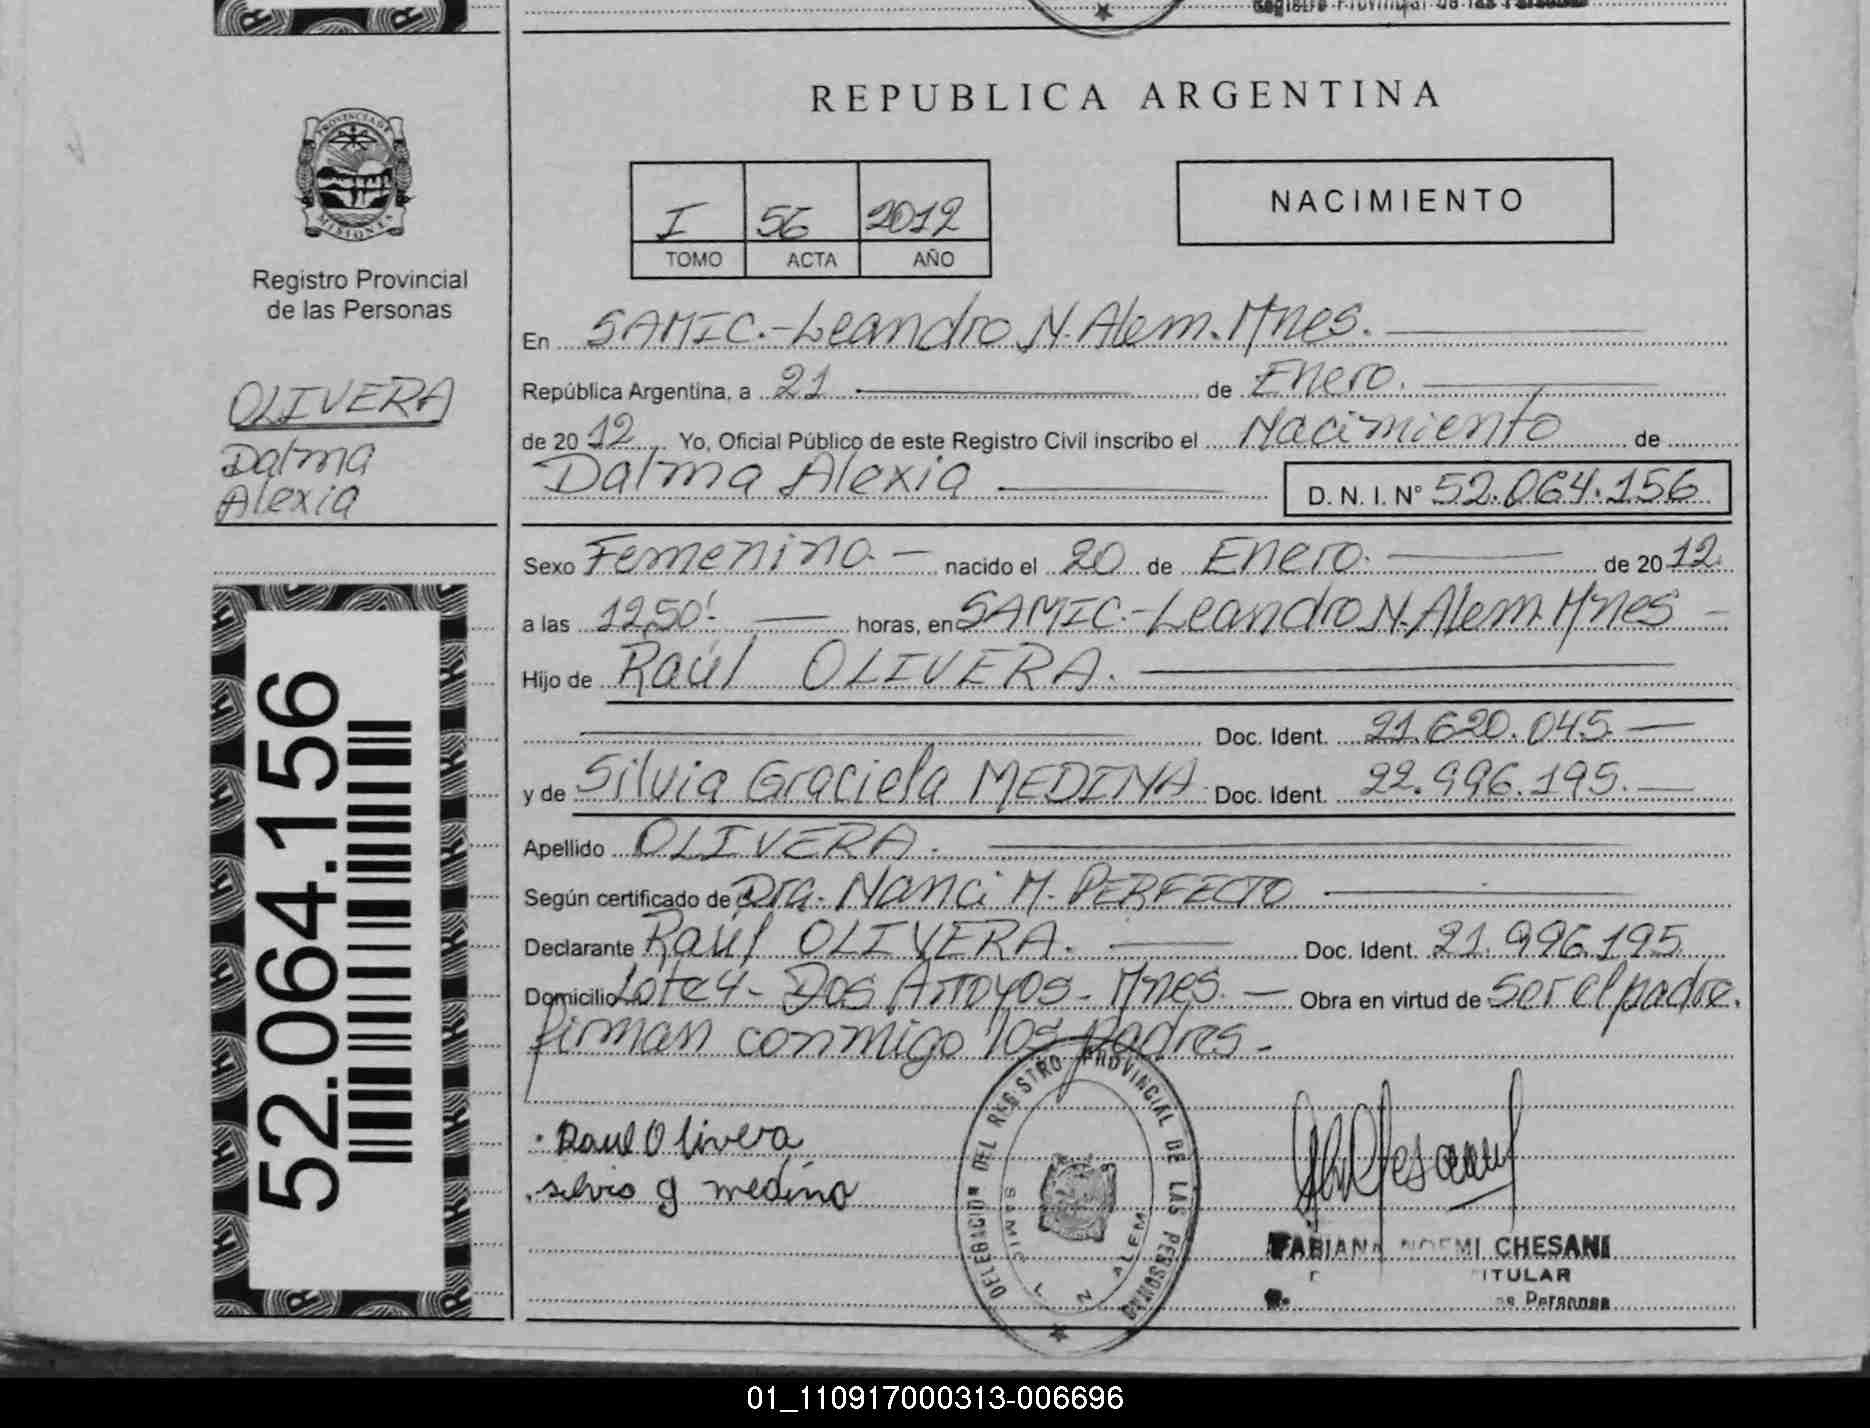 REPUBLICA ARGENTINA
PROVINCIA DE
MISIONES
Registro Provincial
de las Personas
I 56 2012
TOMO ACTA AÑO
NACIMIENTO
OLIVERA
Dalma
Alexia
52.064.156
En SAMIC.-Leandro N. Alem. Mnes.
República Argentina, a 21 de Enero.
de 20 12 Yo, Oficial Público de este Registro Civil inscribo el Nacimiento de
Dalma Alexia D. N. I. N° 52.064.156
Sexo Femenino.- nacido el 20 de Enero. de 20 12.
a las 12,50' horas, en SAMIC.-Leandro N. Alem. Mnes -
Hijo de Raúl OLIVERA.
Doc. Ident. 21.620.045.-
y de Silvia Graciela MEDINA Doc. Ident. 22.996.195.-
Apellido OLIVERA.
Según certificado de Dra. Nanci M. PERFECTO
Declarante Raúl OLIVERA. Doc. Ident. 21.996.195
Domicilio Lote 4 - Dos Arroyos - Mnes. - Obra en virtud de ser el padre.
firman conmigo los padres -
Raul Olivera
silvia g medina
DELEGACION DEL REGISTRO PROVINCIAL DE LAS PERSONAS
SAMIC L. N. ALEM
FABIANA NOEMI CHESANI
TITULAR
Personas
01_110917000313-006696